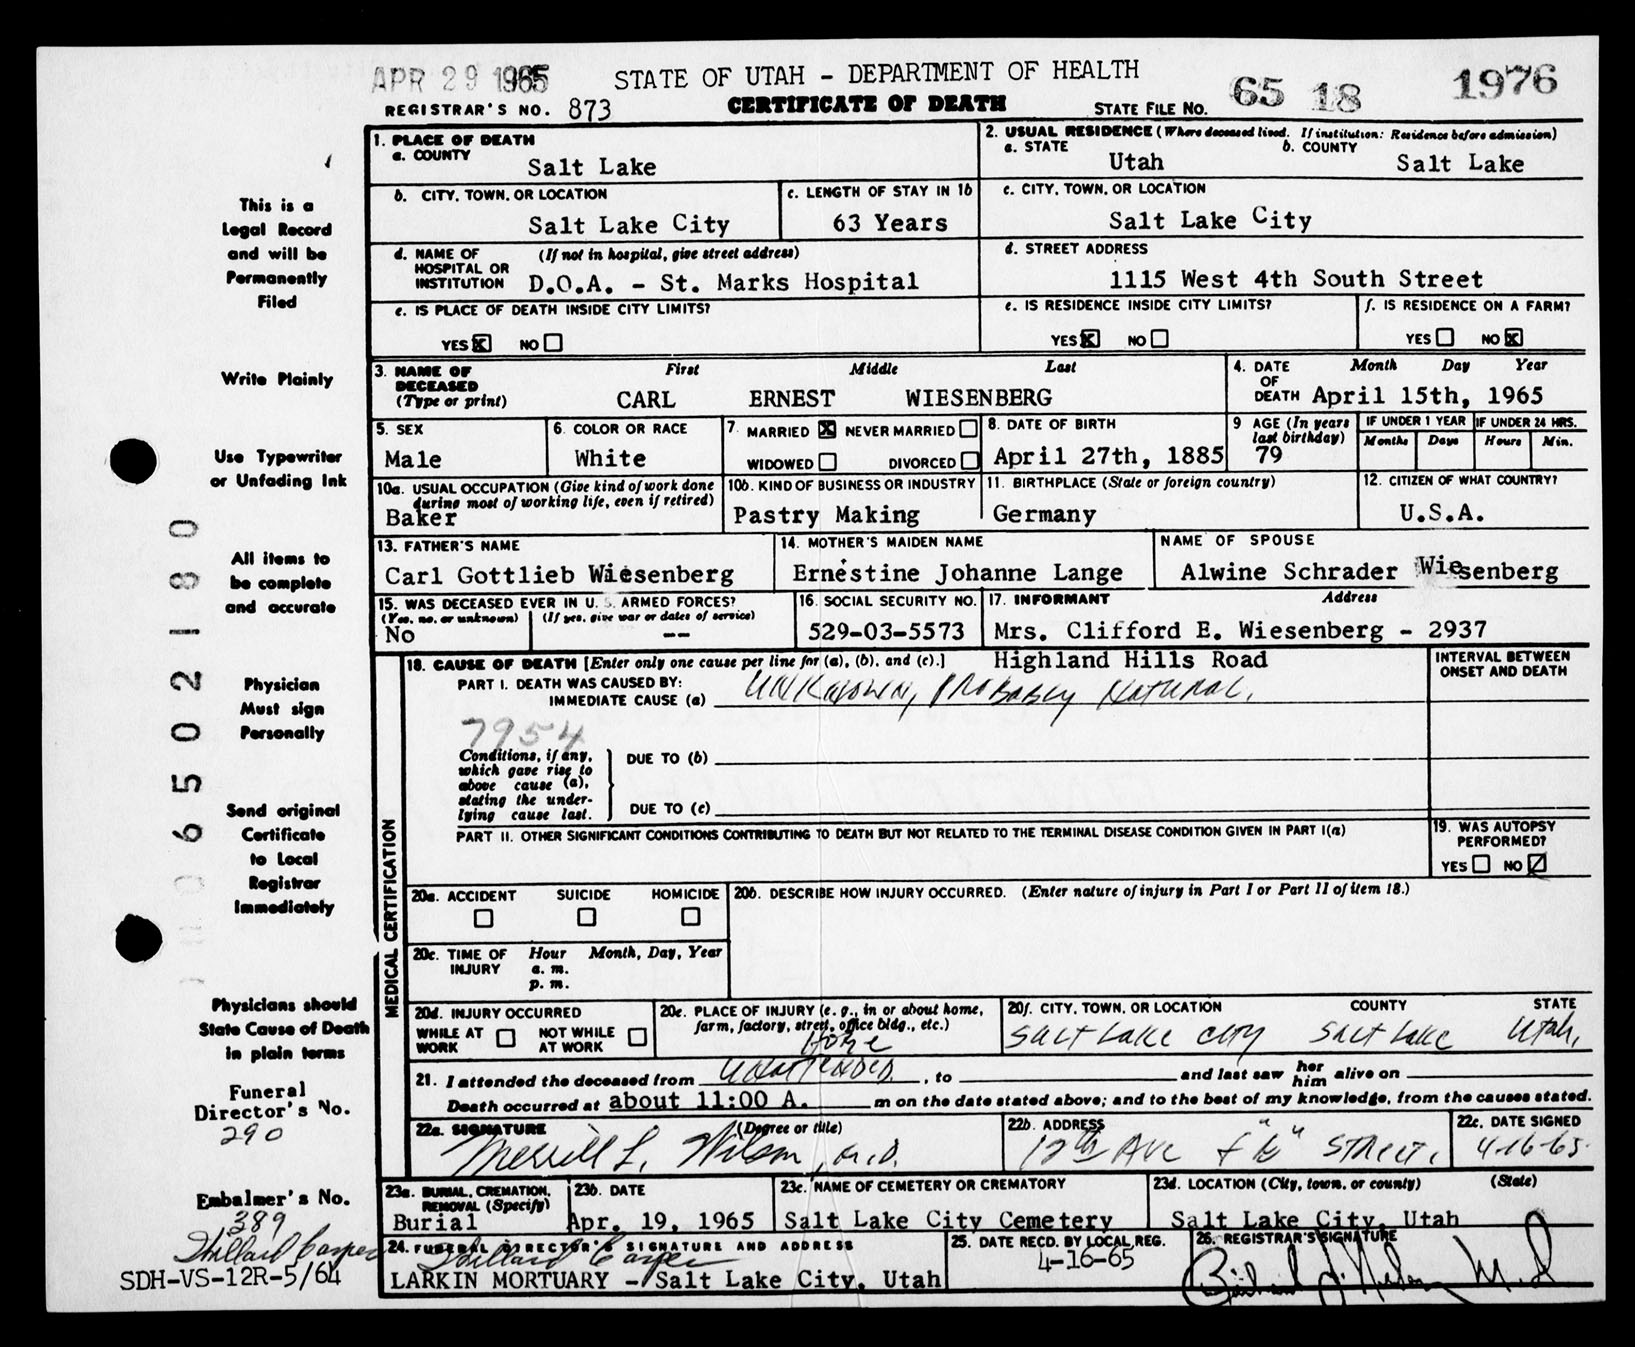 APR 29 1965 STATE OF UTAH - DEPARTMENT OF HEALTH
REGISTRAR'S NO. 873 CERTIFICATE OF DEATH STATE FILE NO. 65 18 1976
1. PLACE OF DEATH
a. COUNTY
Salt Lake
2. USUAL RESIDENCE (Where deceased lived. If institution: Residence before admission)
a. STATE b. COUNTY
Utah Salt Lake
b. CITY, TOWN, OR LOCATION
Salt Lake City
c. LENGTH OF STAY IN 1b
63 Years
c. CITY, TOWN, OR LOCATION
Salt Lake City
d. NAME OF HOSPITAL OR INSTITUTION (If not in hospital, give street address)
D.O.A. - St. Marks Hospital
d. STREET ADDRESS
1115 West 4th South Street
e. IS PLACE OF DEATH INSIDE CITY LIMITS?
YES X NO
e. IS RESIDENCE INSIDE CITY LIMITS?
YES X NO
f. IS RESIDENCE ON A FARM?
YES NO X
3. NAME OF DECEASED (Type or print)
First Middle Last
CARL ERNEST WIESENBERG
4. DATE OF DEATH
Month Day Year
April 15th, 1965
5. SEX
Male
6. COLOR OR RACE
White
7. MARRIED X NEVER MARRIED
WIDOWED DIVORCED
8. DATE OF BIRTH
April 27th, 1885
9 AGE (In years last birthday)
79
IF UNDER 1 YEAR
Months Days
IF UNDER 24 HRS.
Hours Min.
10a. USUAL OCCUPATION (Give kind of work done during most of working life, even if retired)
Baker
10b. KIND OF BUSINESS OR INDUSTRY
Pastry Making
11. BIRTHPLACE (State or foreign country)
Germany
12. CITIZEN OF WHAT COUNTRY?
U.S.A.
13. FATHER'S NAME
Carl Gottlieb Wiesenberg
14. MOTHER'S MAIDEN NAME
Ernestine Johanne Lange
NAME OF SPOUSE
Alwine Schrader Wiesenberg
15. WAS DECEASED EVER IN U. S. ARMED FORCES?
(Yes, no, or unknown) (If yes, give war or dates of service)
No --
16. SOCIAL SECURITY NO.
529-03-5573
17. INFORMANT Address
Mrs. Clifford E. Wiesenberg - 2937
Highland Hills Road
MEDICAL CERTIFICATION
18. CAUSE OF DEATH [Enter only one cause per line for (a), (b), and (c).]
PART I. DEATH WAS CAUSED BY:
IMMEDIATE CAUSE (a) UNKNOWN, PROBABLY NATURAL.
7954
INTERVAL BETWEEN ONSET AND DEATH
Conditions, if any, which gave rise to above cause (a), stating the underlying cause last.
DUE TO (b)
DUE TO (c)
PART II. OTHER SIGNIFICANT CONDITIONS CONTRIBUTING TO DEATH BUT NOT RELATED TO THE TERMINAL DISEASE CONDITION GIVEN IN PART I(a)
19. WAS AUTOPSY PERFORMED?
YES NO
20a. ACCIDENT SUICIDE HOMICIDE
20b. DESCRIBE HOW INJURY OCCURRED. (Enter nature of injury in Part I or Part II of item 18.)
20c. TIME OF INJURY Hour Month, Day, Year
a. m.
p. m.
20d. INJURY OCCURRED
WHILE AT WORK NOT WHILE AT WORK
20e. PLACE OF INJURY (e. g., in or about home, farm, factory, street, office bldg., etc.)
Home
20f. CITY, TOWN, OR LOCATION COUNTY STATE
Salt Lake City Salt Lake Utah,
21. I attended the deceased from UNATTENDED. , to and last saw her him alive on
Death occurred at about 11:00 A. m on the date stated above; and to the best of my knowledge, from the causes stated.
22a. SIGNATURE (Degree or title)
Merrill L. Wilson, M.D.
22b. ADDRESS
12th Ave & "E" STREET,
22c. DATE SIGNED
4-16-65.
23a. BURIAL, CREMATION, REMOVAL (Specify)
Burial
23b. DATE
Apr. 19, 1965
23c. NAME OF CEMETERY OR CREMATORY
Salt Lake City Cemetery
23d. LOCATION (City, town, or county) (State)
Salt Lake City, Utah
24. FUNERAL DIRECTOR'S SIGNATURE AND ADDRESS
LARKIN MORTUARY - Salt Lake City, Utah
25. DATE RECD. BY LOCAL REG.
4-16-65
26. REGISTRAR'S SIGNATURE
This is a
Legal Record
and will be
Permanently
Filed
Write Plainly
Use Typewriter
or Unfading Ink
All items to
be complete
and accurate
Physician
Must sign
Personally
Send original
Certificate
to Local
Registrar
Immediately
Physicians should
State Cause of Death
in plain terms
Funeral
Director's No.
290
Embalmer's No.
389
SDH-VS-12R-5/64
6502180